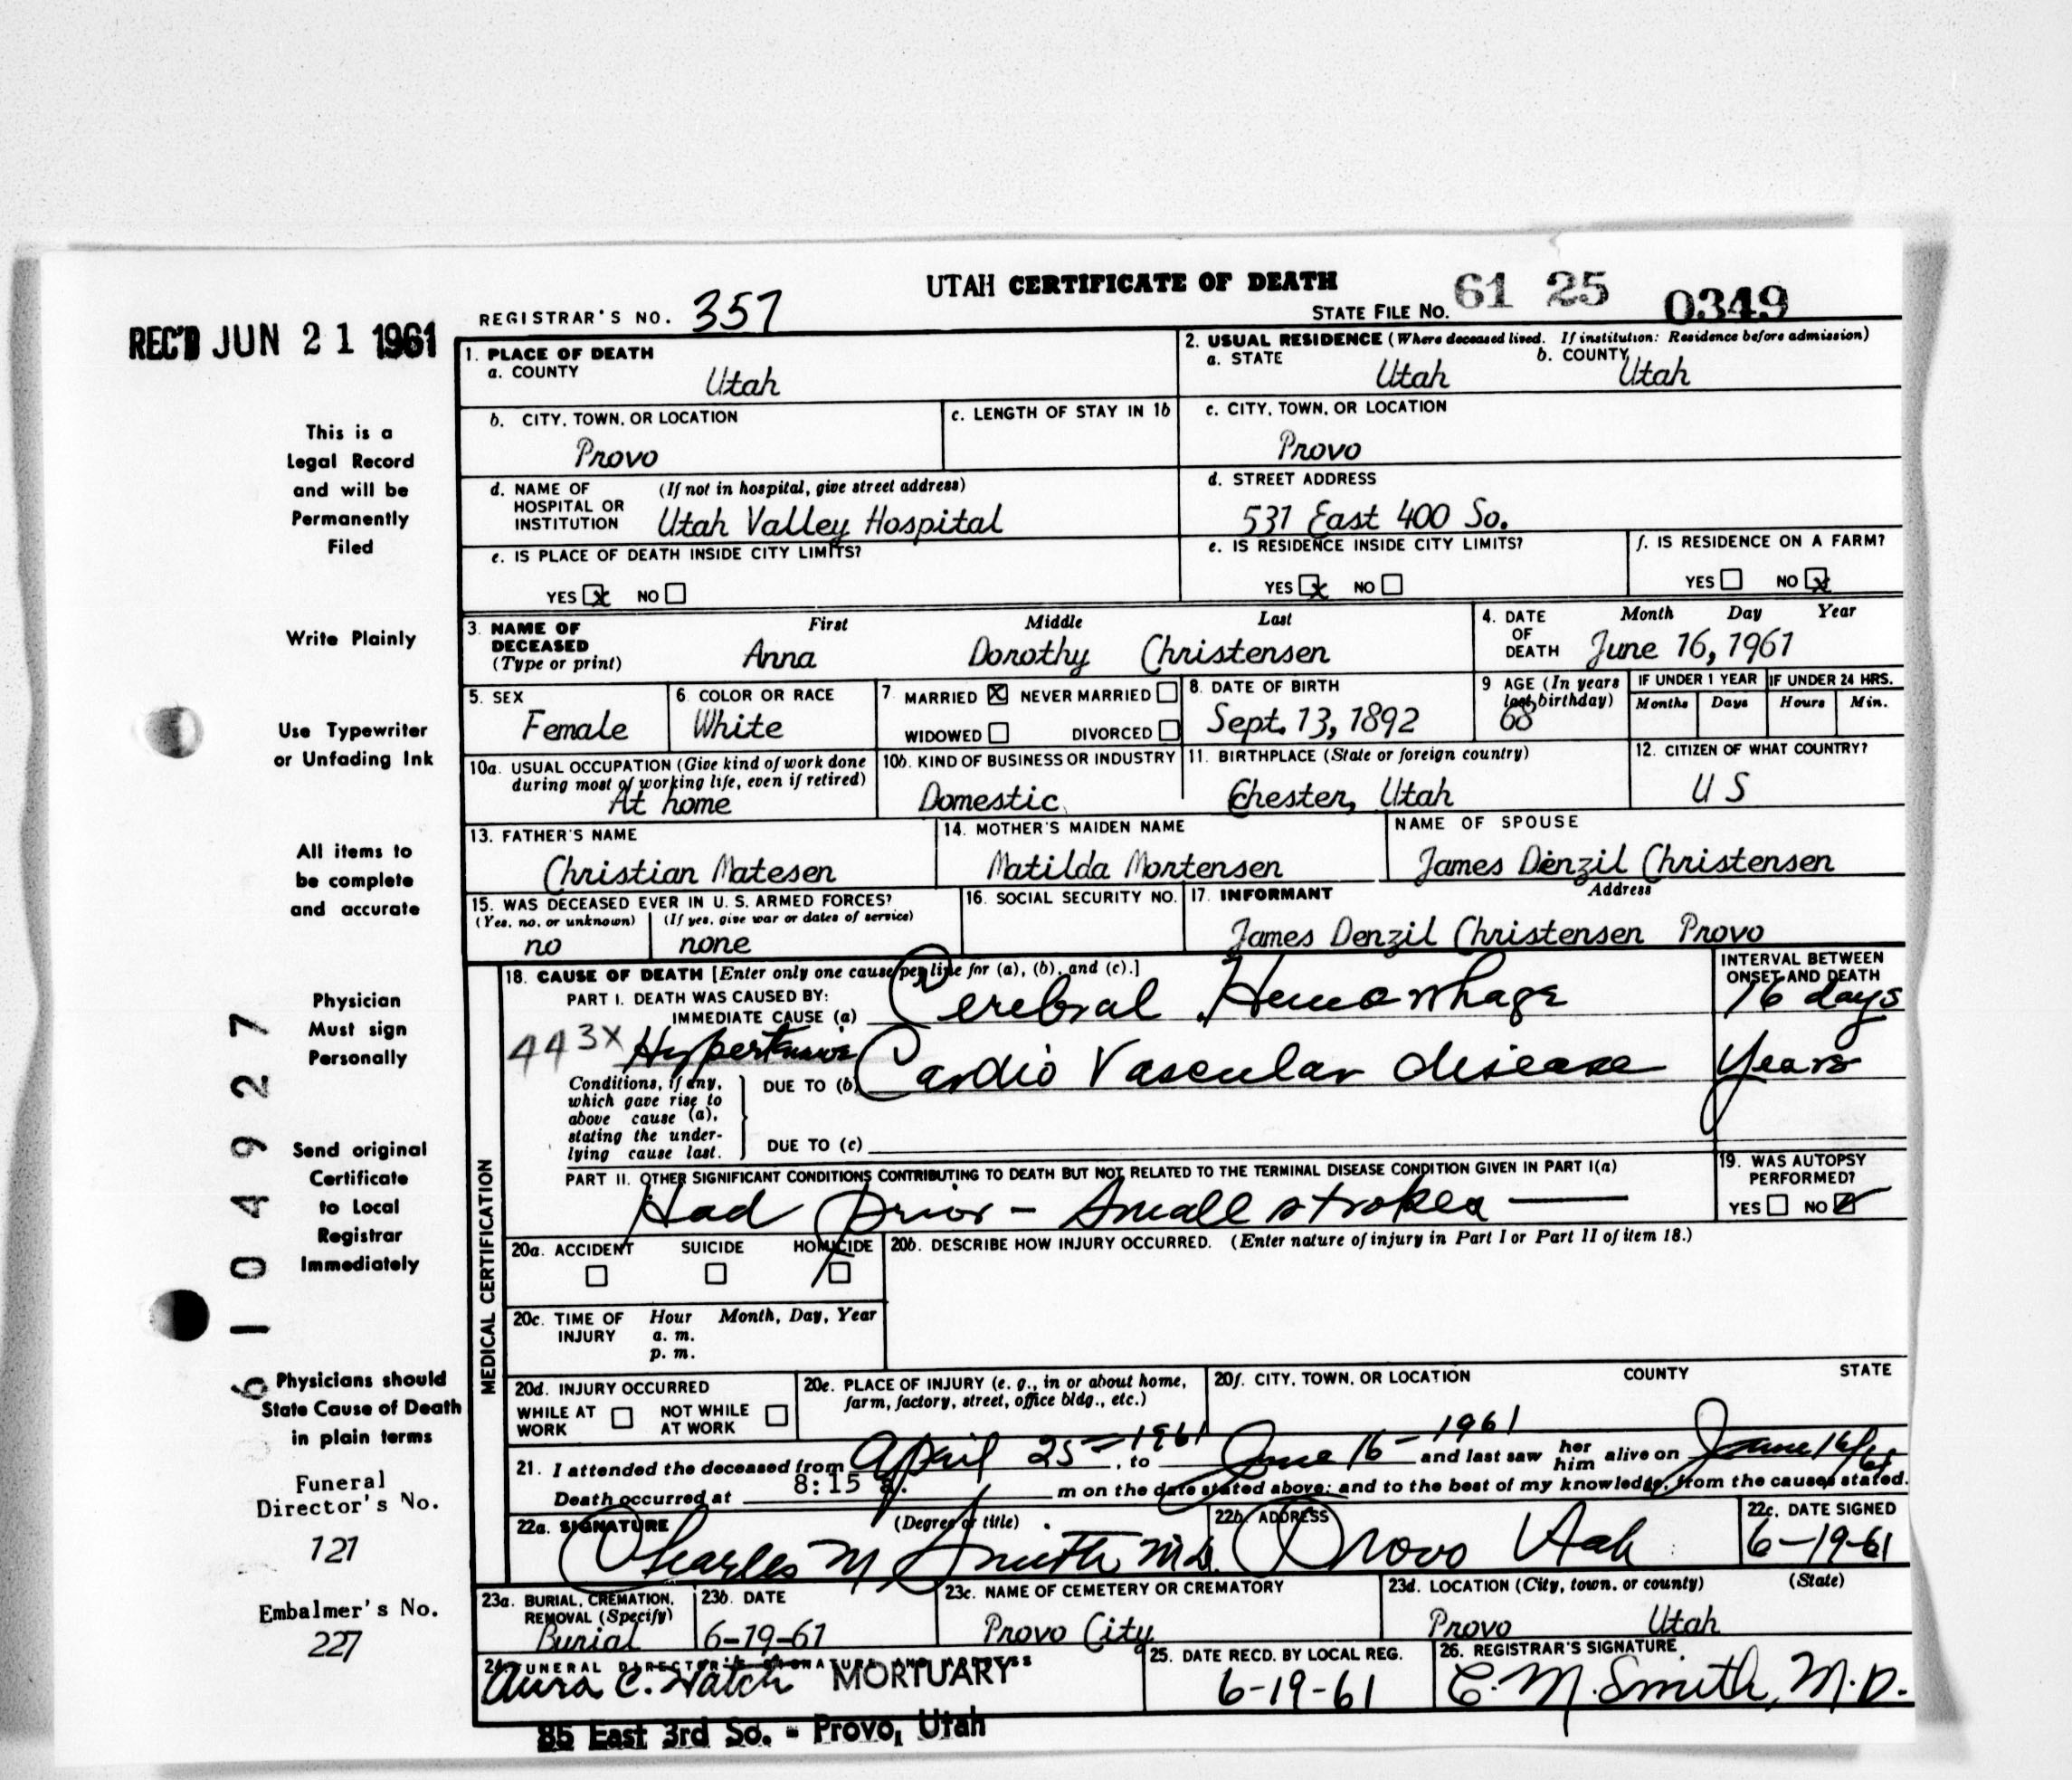 UTAH CERTIFICATE OF DEATH
REGISTRAR'S NO. 357
STATE FILE NO. 61 25 0349
REC'D JUN 21 1961
This is a
Legal Record
and will be
Permanently
Filed
Write Plainly
Use Typewriter
or Unfading Ink
All items to
be complete
and accurate
Physician
Must sign
Personally
Send original
Certificate
to Local
Registrar
Immediately
Physicians should
State Cause of Death
in plain terms
Funeral
Director's No.
121
Embalmer's No.
227
6 1 0 4 9 2 7
1. PLACE OF DEATH
a. COUNTY
Utah
2. USUAL RESIDENCE (Where deceased lived. If institution: Residence before admission)
a. STATE Utah b. COUNTY Utah
b. CITY, TOWN, OR LOCATION
Provo
c. LENGTH OF STAY IN 1b
c. CITY, TOWN, OR LOCATION
Provo
d. NAME OF HOSPITAL OR INSTITUTION (If not in hospital, give street address)
Utah Valley Hospital
d. STREET ADDRESS
531 East 400 So.
e. IS PLACE OF DEATH INSIDE CITY LIMITS?
YES x NO
e. IS RESIDENCE INSIDE CITY LIMITS?
YES x NO
f. IS RESIDENCE ON A FARM?
YES NO x
3. NAME OF DECEASED (Type or print)
First Middle Last
Anna Dorothy Christensen
4. DATE OF DEATH
Month Day Year
June 16, 1961
5. SEX
Female
6. COLOR OR RACE
White
7. MARRIED x NEVER MARRIED
WIDOWED DIVORCED
8. DATE OF BIRTH
Sept. 13, 1892
9 AGE (In years last birthday)
68
IF UNDER 1 YEAR
Months Days
IF UNDER 24 HRS.
Hours Min.
10a. USUAL OCCUPATION (Give kind of work done during most of working life, even if retired)
At home
10b. KIND OF BUSINESS OR INDUSTRY
Domestic
11. BIRTHPLACE (State or foreign country)
Chester, Utah
12. CITIZEN OF WHAT COUNTRY?
U S
13. FATHER'S NAME
Christian Matesen
14. MOTHER'S MAIDEN NAME
Matilda Mortensen
NAME OF SPOUSE
James Denzil Christensen
15. WAS DECEASED EVER IN U. S. ARMED FORCES?
(Yes, no, or unknown) (If yes, give war or dates of service)
no none
16. SOCIAL SECURITY NO.
17. INFORMANT Address
James Denzil Christensen Provo
MEDICAL CERTIFICATION
18. CAUSE OF DEATH [Enter only one cause per line for (a), (b), and (c).]
PART I. DEATH WAS CAUSED BY:
IMMEDIATE CAUSE (a) Cerebral Hemorrhage
INTERVAL BETWEEN ONSET AND DEATH
16 days
443X Hypertensive
Conditions, if any, which gave rise to above cause (a), stating the underlying cause last.
DUE TO (b) Cardio Vascular disease
Years
DUE TO (c)
PART II. OTHER SIGNIFICANT CONDITIONS CONTRIBUTING TO DEATH BUT NOT RELATED TO THE TERMINAL DISEASE CONDITION GIVEN IN PART I(a)
Had prior - Small strokes
19. WAS AUTOPSY PERFORMED?
YES NO
20a. ACCIDENT SUICIDE HOMICIDE
20b. DESCRIBE HOW INJURY OCCURRED. (Enter nature of injury in Part I or Part II of item 18.)
20c. TIME OF INJURY Hour Month, Day, Year
a. m.
p. m.
20d. INJURY OCCURRED
WHILE AT WORK NOT WHILE AT WORK
20e. PLACE OF INJURY (e. g., in or about home, farm, factory, street, office bldg., etc.)
20f. CITY, TOWN, OR LOCATION COUNTY STATE
21. I attended the deceased from April 25 - 1961, to June 16 - 1961 and last saw her him alive on June 16/61
Death occurred at 8:15 a. m on the date stated above; and to the best of my knowledge, from the causes stated.
22a. SIGNATURE (Degree or title)
Charles M Smith M.D.
22b. ADDRESS
Provo Utah
22c. DATE SIGNED
6-19-61
23a. BURIAL, CREMATION, REMOVAL (Specify)
Burial
23b. DATE
6-19-61
23c. NAME OF CEMETERY OR CREMATORY
Provo City
23d. LOCATION (City, town, or county) (State)
Provo Utah
24. FUNERAL DIRECTOR'S SIGNATURE AND ADDRESS
Aura C. Hatch MORTUARY
85 East 3rd So. - Provo, Utah
25. DATE RECD. BY LOCAL REG.
6-19-61
26. REGISTRAR'S SIGNATURE
C. M. Smith, M.D.